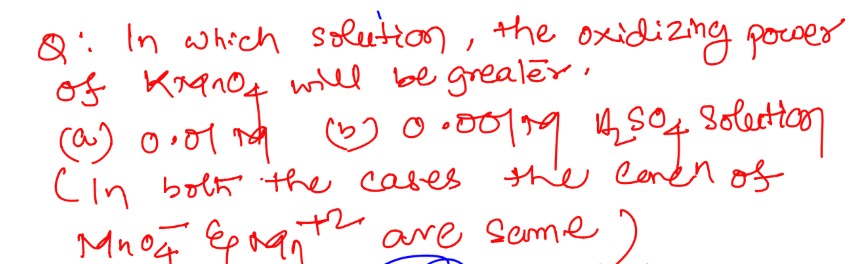 Q: In which solution, the oxidizing power
of KMnO4 will be greater.
(a) 0.01 M (b) 0.001 M H2SO4 Solution
(In both the cases the concn of
MnO4- & Mn+2 are same)